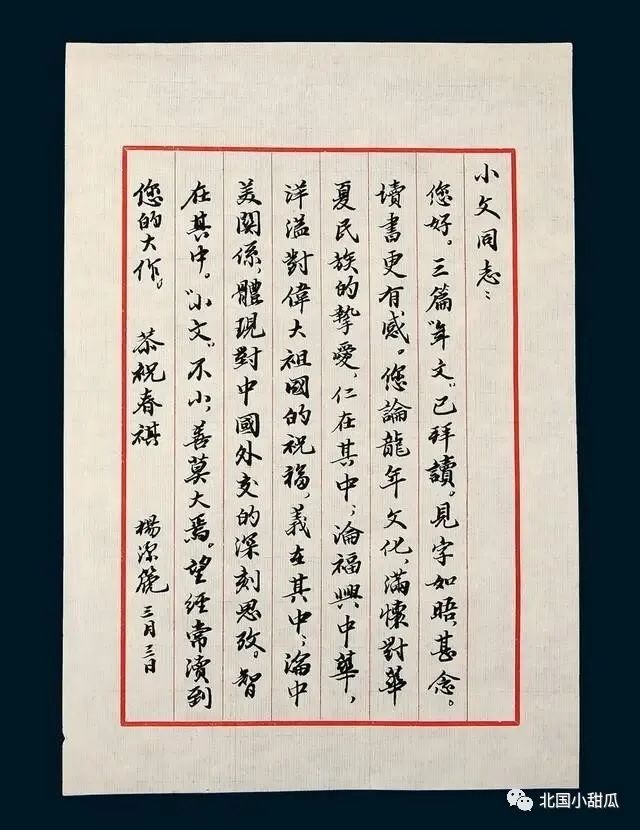 小文同志：
您好。三篇“年文”已拜讀。見字如晤，甚念。
讀書更有感。您論龍年文化，滿懷對華
夏民族的摯愛，仁在其中；論福興中華，
洋溢對偉大祖國的祝福，義在其中；論中
美關係，體現對中國外交的深刻思考。智
在其中。“小文”不小，善莫大焉。望經常讀到
您的大作。 恭祝春祺 楊潔篪 三月三日
北国小甜瓜